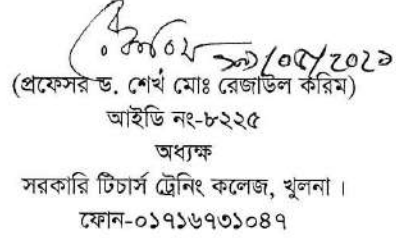 (প্রফেসর ড. শেখ মোঃ রেজাউল করিম)
আইডি নং-৮২২৫
অধ্যক্ষ
সরকারি টিচার্স ট্রেনিং কলেজ, খুলনা ।
ফোন-০১৭১৬৭৩১০৪৭